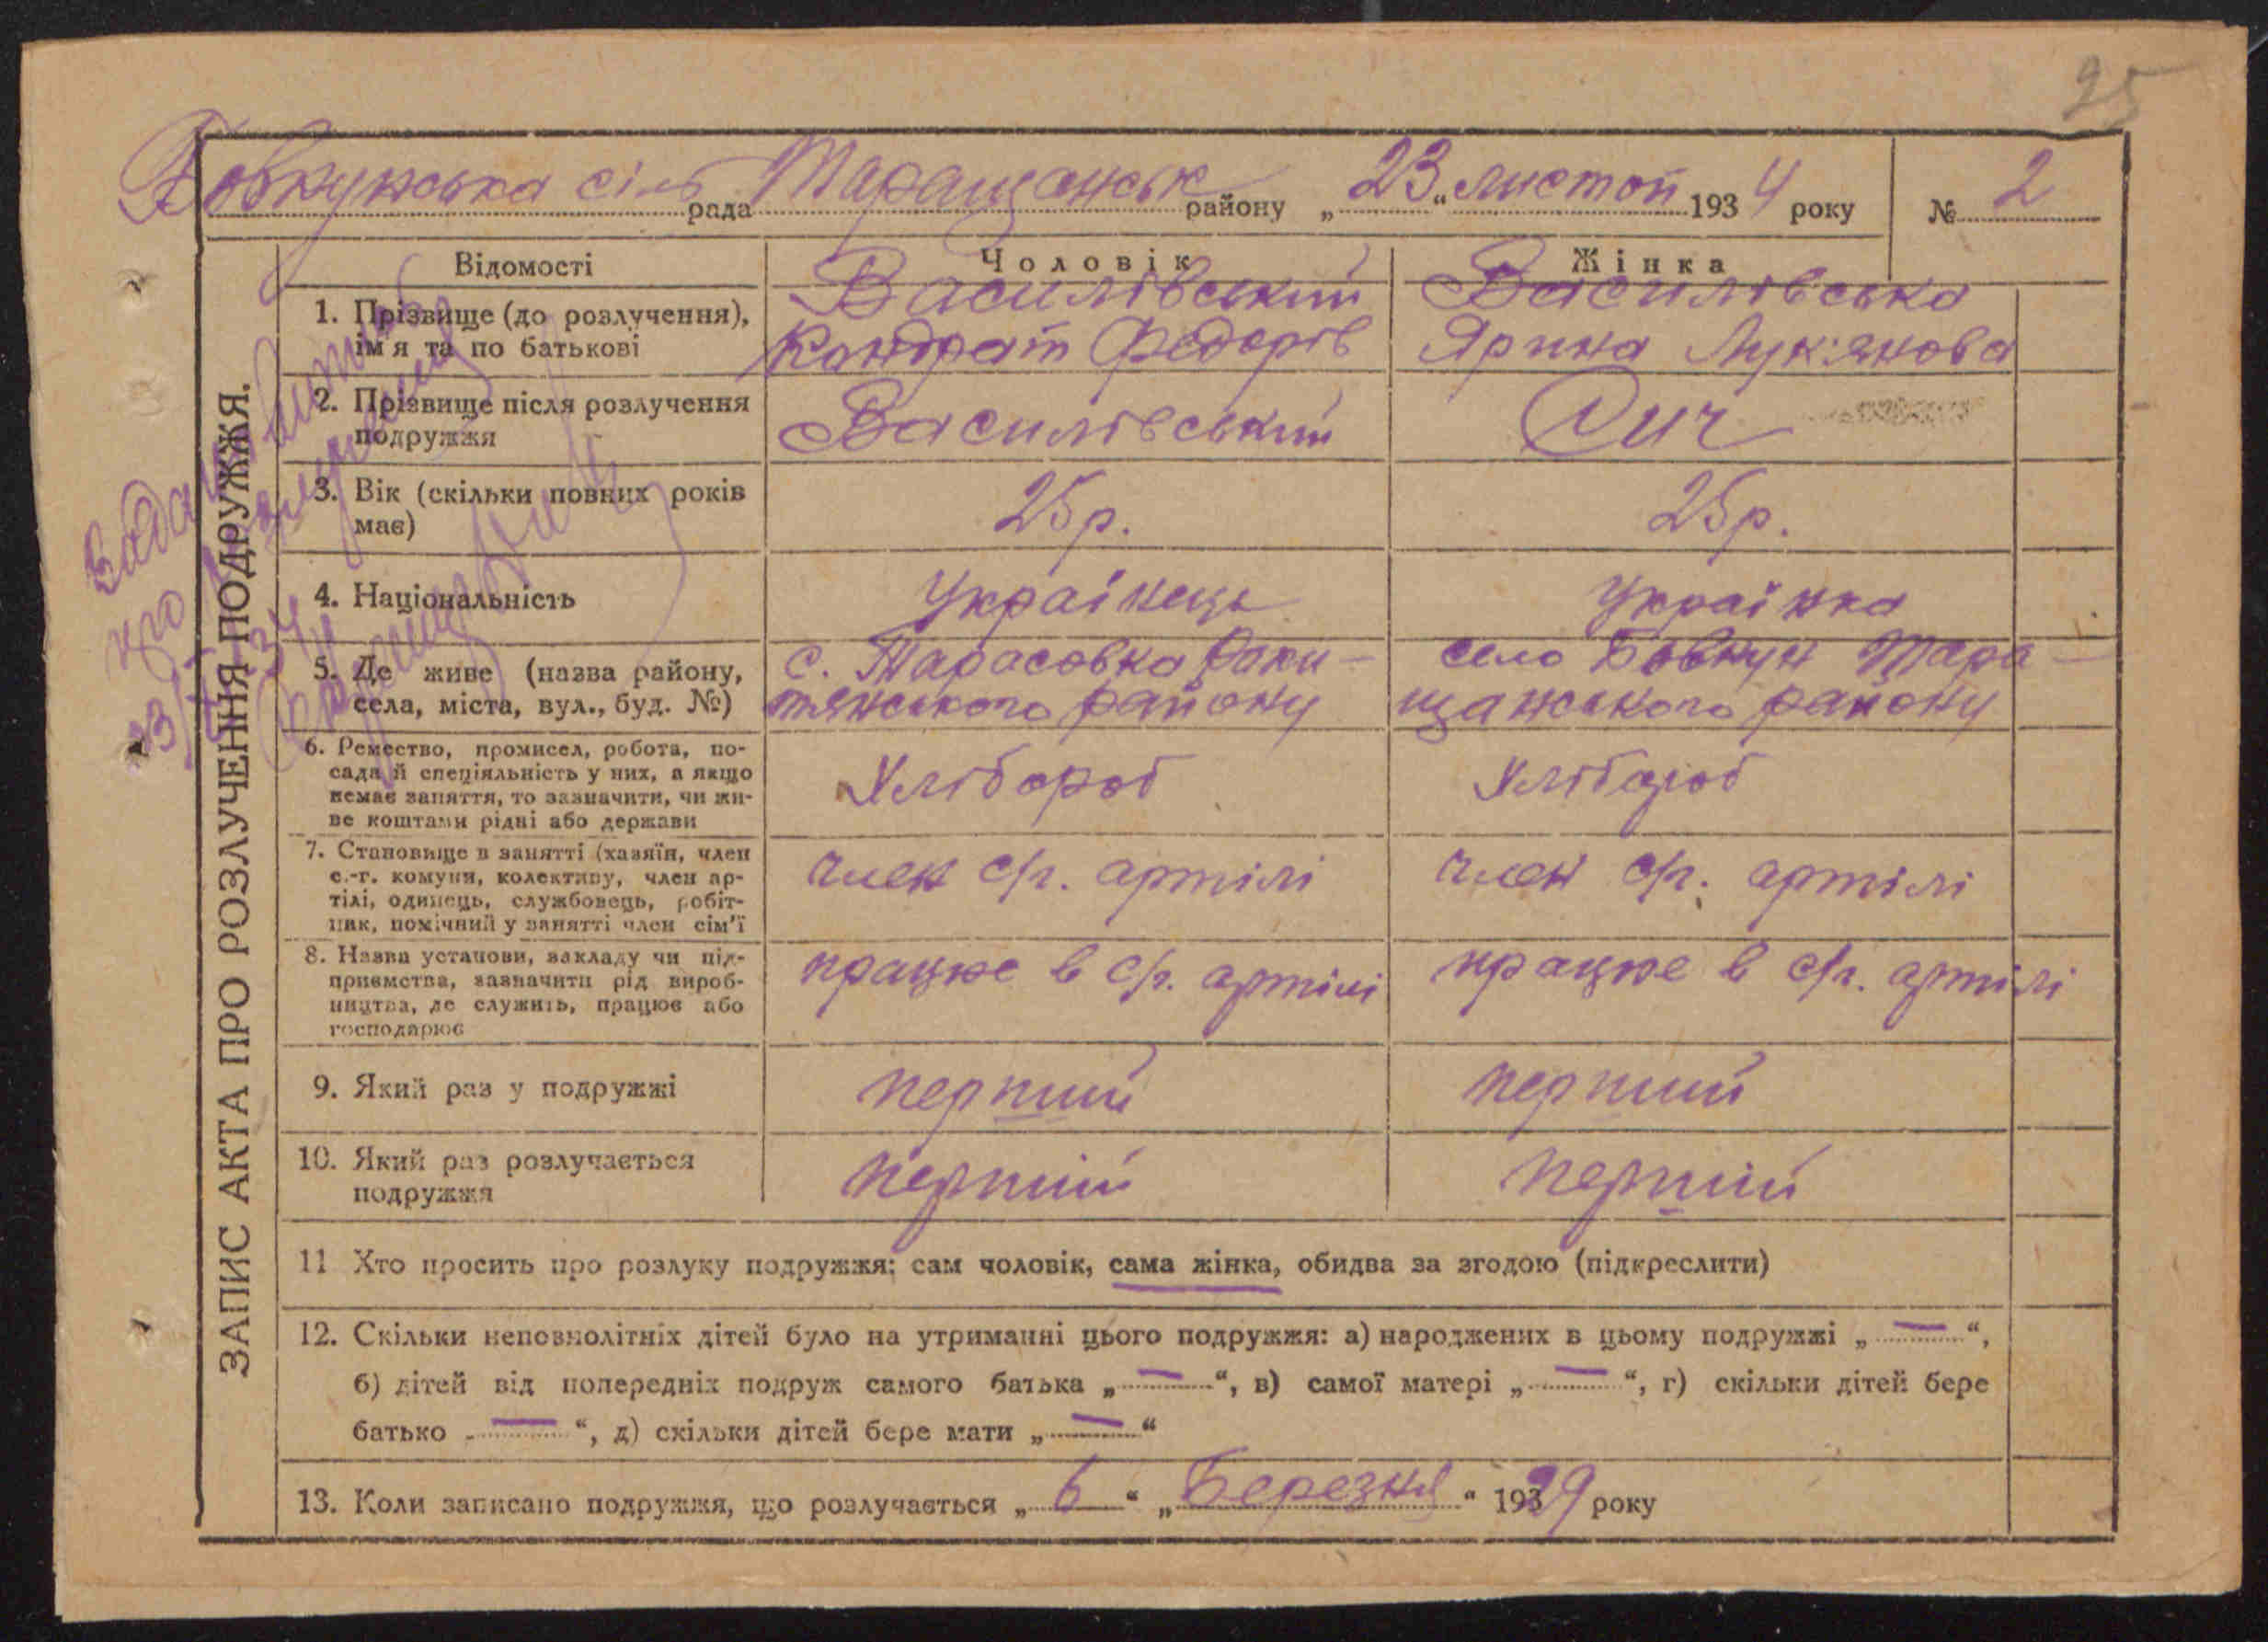 25
Бовкунська сіль рада Таращанськ району „23“ листоп 1934 року № 2
ЗАПИС АКТА ПРО РОЗЛУЧЕННЯ ПОДРУЖЖЯ.
Відомості Чоловік Жінка
1. Прізвище (до розлучення), Василівський Василівська
ім'я та по батькові Кондрат Федорів Ярина Лук'янова
2. Прізвище після розлучення
подружжя Василівський Сич
3. Вік (скільки повних років
має) 25 р. 25 р.
4. Національність Українець Українка
5. Де живе (назва району, с. Тарасовка Раки- село Бовкун Тара-
села, міста, вул., буд. №) тянського району щанського району
6. Ремество, промисел, робота, по-
сада й спеціяльність у них, а якщо
немає заняття, то зазначити, чи жи-
ве коштами рідні або держави
Хлібороб Хлібороб
7. Становище в занятті (хазяїн, член
с.-г. комуни, колективу, член ар-
тілі, одинець, службовець, робіт-
ник, помічний у занятті член сім'ї
член с/г. артілі член с/г. артілі
8. Назва установи, закладу чи під-
приємства, зазначити рід вироб-
ництва, де служить, працює або
господарює
працює в с/г. артілі працює в с/г. артілі
9. Який раз у подружжі перший перший
10. Який раз розлучається
подружжя перший перший
11 Хто просить про розлуку подружжя: сам чоловік, сама жінка, обидва за згодою (підкреслити)
12. Скільки неповнолітніх дітей було на утриманні цього подружжя: а) народжених в цьому подружжі „—“,
б) дітей від попередніх подруж самого батька „—“, в) самої матері „—“, г) скільки дітей бере
батько „—“, д) скільки дітей бере мати „—“
13. Коли записано подружжя, що розлучається „6“ „Березня“ 1929 року